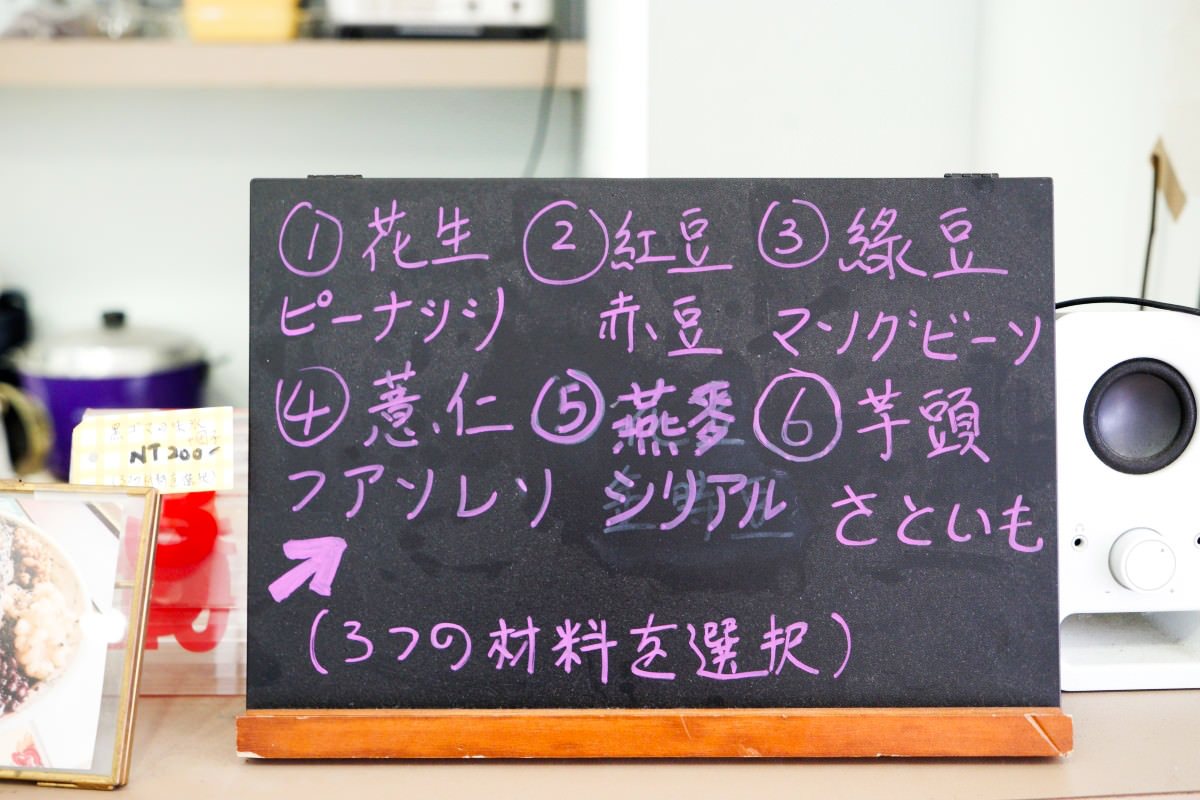 ① 花生 ② 紅豆 ③ 綠豆
ピーナッツ 赤豆 マングビーン
④ 薏仁 ⑤ 燕麥 ⑥ 芋頭
ファソレソ シリアル さといも
(3つの材料を選択)
NT200